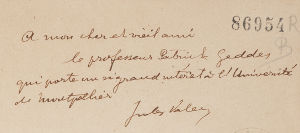 A mon cher et vieil ami
86954 R
B
le professeur Patrick Geddes
qui porte un si grand intérêt à l'Université
de Montpellier
Jules Valery